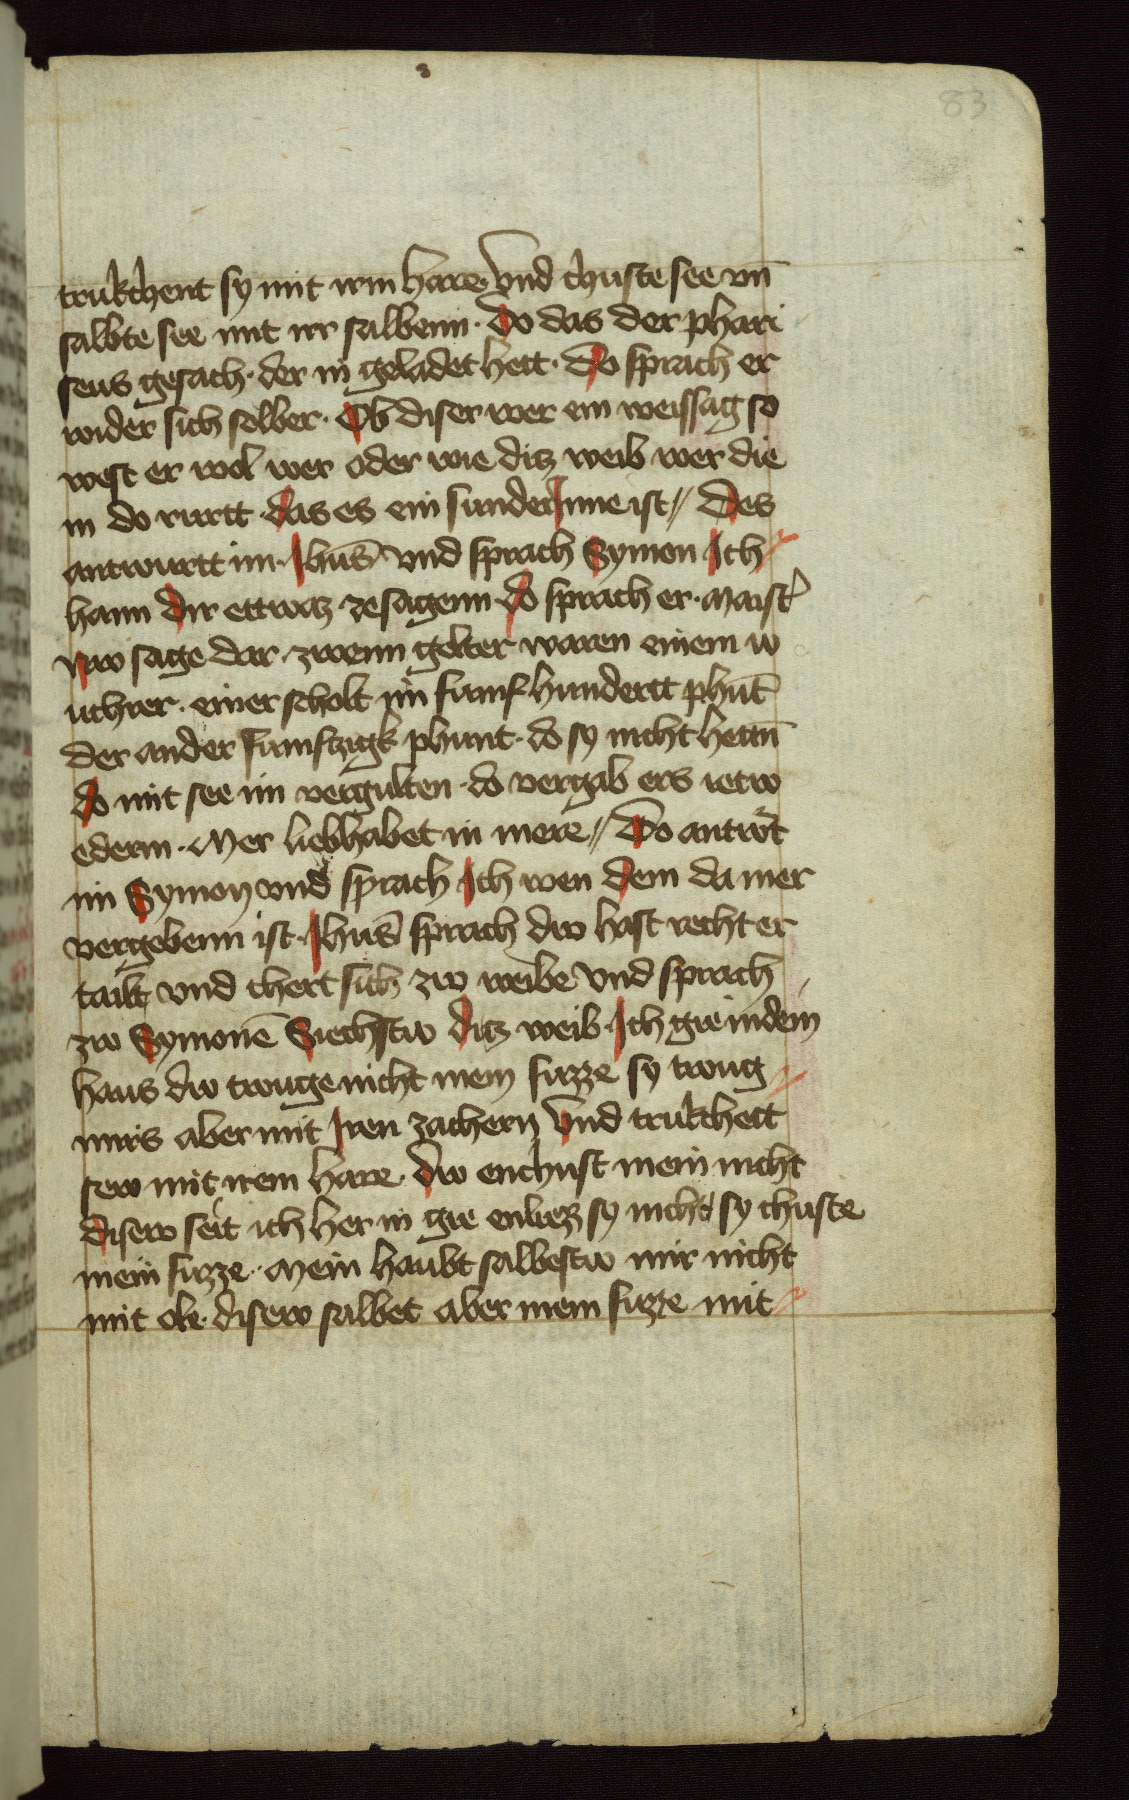 83
trukchent sy mit irm hare. Vnd chuste see vn̄
salbte see mit irr salbenn. Do das der phari
seus gesach. der in geladet hett. Do sprach er
wider sich selber. Ob diser wer ein weissag so
west er wol wer oder wie ditz weib wer die
in do rurtt. das es ein sunderInne ist // Des
antwurtt im. Jhus̄ vnd sprach Symon Ich
hann dir ettwaz zesagenn. do sprach er. Maist̉
nw sage dar. zwenn gelter waren einem w
uchrer. einer scholt im funf hundertt phūt
der ander funftzigk phunt. do sy nicht hettn̄
do mit see im vergulten. do vergab ers ietw
ederm. Wer liebhabet in mere // Do antwr̉t
im Symon vnd sprach Ich wen dem da mer
vergebenn ist. Jhus̄ sprach dw hast recht er
tailt vnd chert sich zw weibe Vnd sprach
zw Symonē Siechstw ditz weib. Ich gie in dein
haus dw twuge nicht mein fuzze sy twug
mirs aber mit Iren zachern Vnd trukchett
sew mit irem hare. Dw enchust mein nicht
disew seit ich her in gie enliez sy nicht sy chuste
mein fuzze. Mein haubt salbestw mir nicht
mit ole. disew salbet aber mein fuzze mit